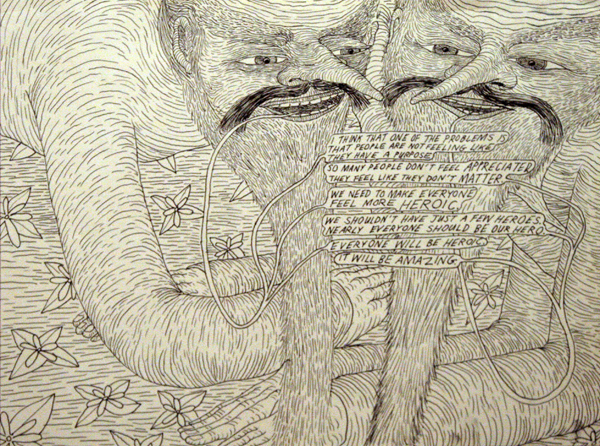 THINK THAT ONE OF THE PROBLEMS IS
THAT PEOPLE ARE NOT FEELING LIKE
THEY HAVE A PURPOSE
SO MANY PEOPLE DON'T FEEL APPRECIATED
THEY FEEL LIKE THEY DON'T MATTER
WE NEED TO MAKE EVERYONE
FEEL MORE HEROIC
WE SHOULDN'T HAVE JUST A FEW HEROES
NEARLY EVERYONE SHOULD BE OUR HERO
EVERYONE WILL BE HEROIC
IT WILL BE AMAZING